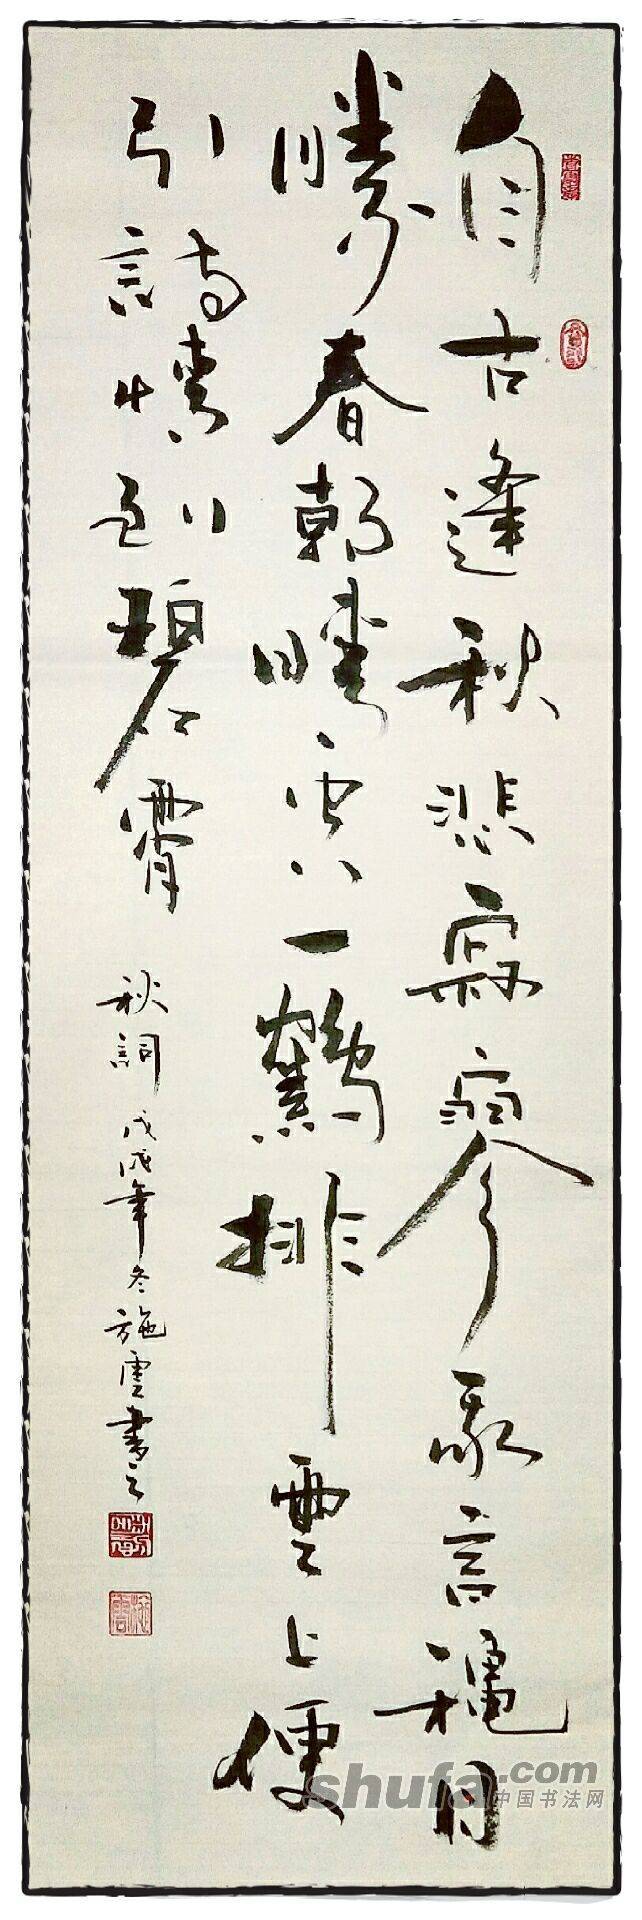 自古逢秋悲寂寥我言穐日
勝春朝晴空一鶴排雲上便
引詩情到碧霄
秋詞 戊戌年冬施雲書之
shufa.com
中国书法网